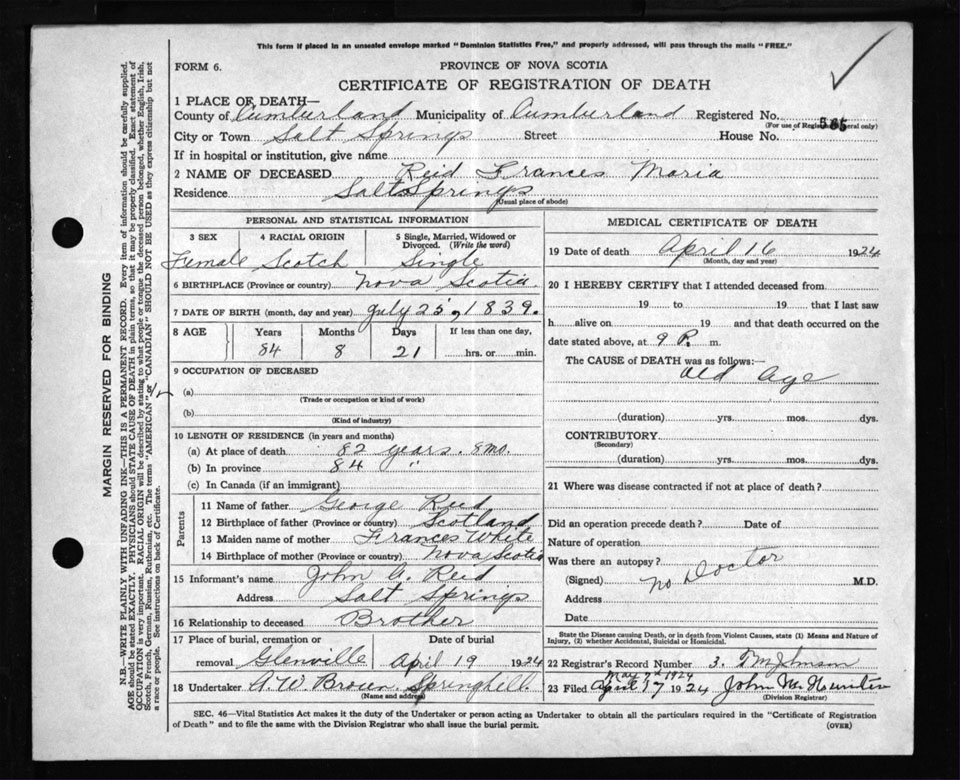 This form if placed in an unsealed envelope marked "Dominion Statistics Free," and properly addressed, will pass through the mails "FREE."
FORM 6.
PROVINCE OF NOVA SCOTIA
CERTIFICATE OF REGISTRATION OF DEATH
1 PLACE OF DEATH—
County of Cumberland Municipality of Cumberland Registered No.
(For use of Registrar General only)
City or Town Salt Springs Street House No.
If in hospital or institution, give name
2 NAME OF DECEASED Reid Frances Maria
Residence Salt Springs
(Usual place of abode)
PERSONAL AND STATISTICAL INFORMATION
3 SEX 4 RACIAL ORIGIN 5 Single, Married, Widowed or Divorced. (Write the word)
Female Scotch Single
6 BIRTHPLACE (Province or country) Nova Scotia
7 DATE OF BIRTH (month, day and year) July 25, 1839.
8 AGE Years Months Days If less than one day,
84 8 21 hrs. or min.
9 OCCUPATION OF DECEASED
(a)
(Trade or occupation or kind of work)
(b)
(Kind of industry)
10 LENGTH OF RESIDENCE (in years and months)
(a) At place of death 82 years. 8 mo.
(b) In province 84 "
(c) In Canada (if an immigrant)
Parents
11 Name of father George Reid
12 Birthplace of father (Province or country) Scotland
13 Maiden name of mother Frances White
14 Birthplace of mother (Province or country) Nova Scotia
15 Informant's name John A. Reid
Address Salt Springs
16 Relationship to deceased Brother
17 Place of burial, cremation or Date of burial
removal Glenville April 19 1924
18 Undertaker A. W. Brown. Springhill.
(Name and address)
MEDICAL CERTIFICATE OF DEATH
19 Date of death April 16 1924
(Month, day and year)
20 I HEREBY CERTIFY that I attended deceased from
19 to 19 that I last saw
h alive on 19 and that death occurred on
date stated above, at 9 P. m.
The CAUSE of DEATH was as follows:—
Old Age
(duration) yrs. mos. dys.
CONTRIBUTORY
(Secondary)
(duration) yrs. mos. dys.
21 Where was disease contracted if not at place of death?
Did an operation precede death? Date of
Nature of operation
Was there an autopsy?
(Signed) No Doctor M.D.
Address
Date
State the Disease causing Death, or in death from Violent Causes, state (1) Means and Nature of
Injury, (2) whether Accidental, Suicidal or Homicidal.
22 Registrar's Record Number 3.
May 7th 1924
23 Filed April 17 1924 John M.
(Division Registrar)
SEC. 46—Vital Statistics Act makes it the duty of the Undertaker or person acting as Undertaker to obtain all the particulars required in the "Certificate of Registration
of Death" and to file the same with the Division Registrar who shall issue the burial permit.
(OVER)
MARGIN RESERVED FOR BINDING
N.B.—WRITE PLAINLY WITH UNFADING INK—THIS IS A PERMANENT RECORD. Every item of information should be carefully supplied.
AGE should be stated EXACTLY. PHYSICIANS should STATE CAUSE OF DEATH in plain terms, so that it may be properly classified. Exact statement of
OCCUPATION is very important. RACIAL ORIGIN will be described by stating to what people or tongue the deceased person belonged, whether English, Irish,
Scotch, French, German, Russian, Ruthenian, etc. The terms "AMERICAN" or "CANADIAN" SHOULD NOT BE USED as they express citizenship but not
a race or people. See instructions on back of Certificate.